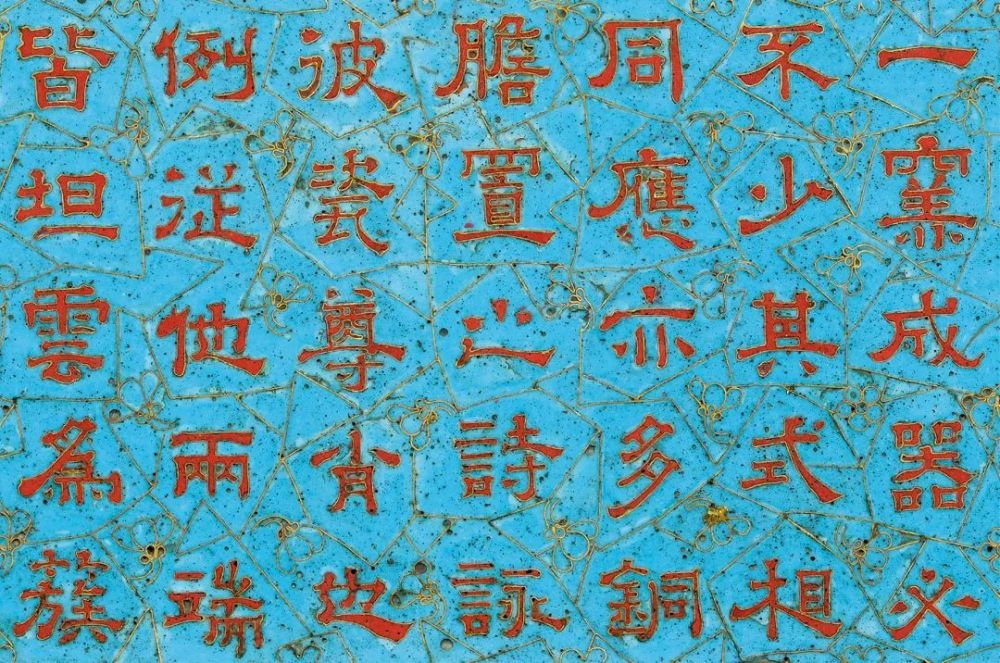 一窯成器必
不少其式相
同應亦多銅
膽置之詩詠
彼瓷尊肖也
例従他兩端
皆坦雲爲蔟